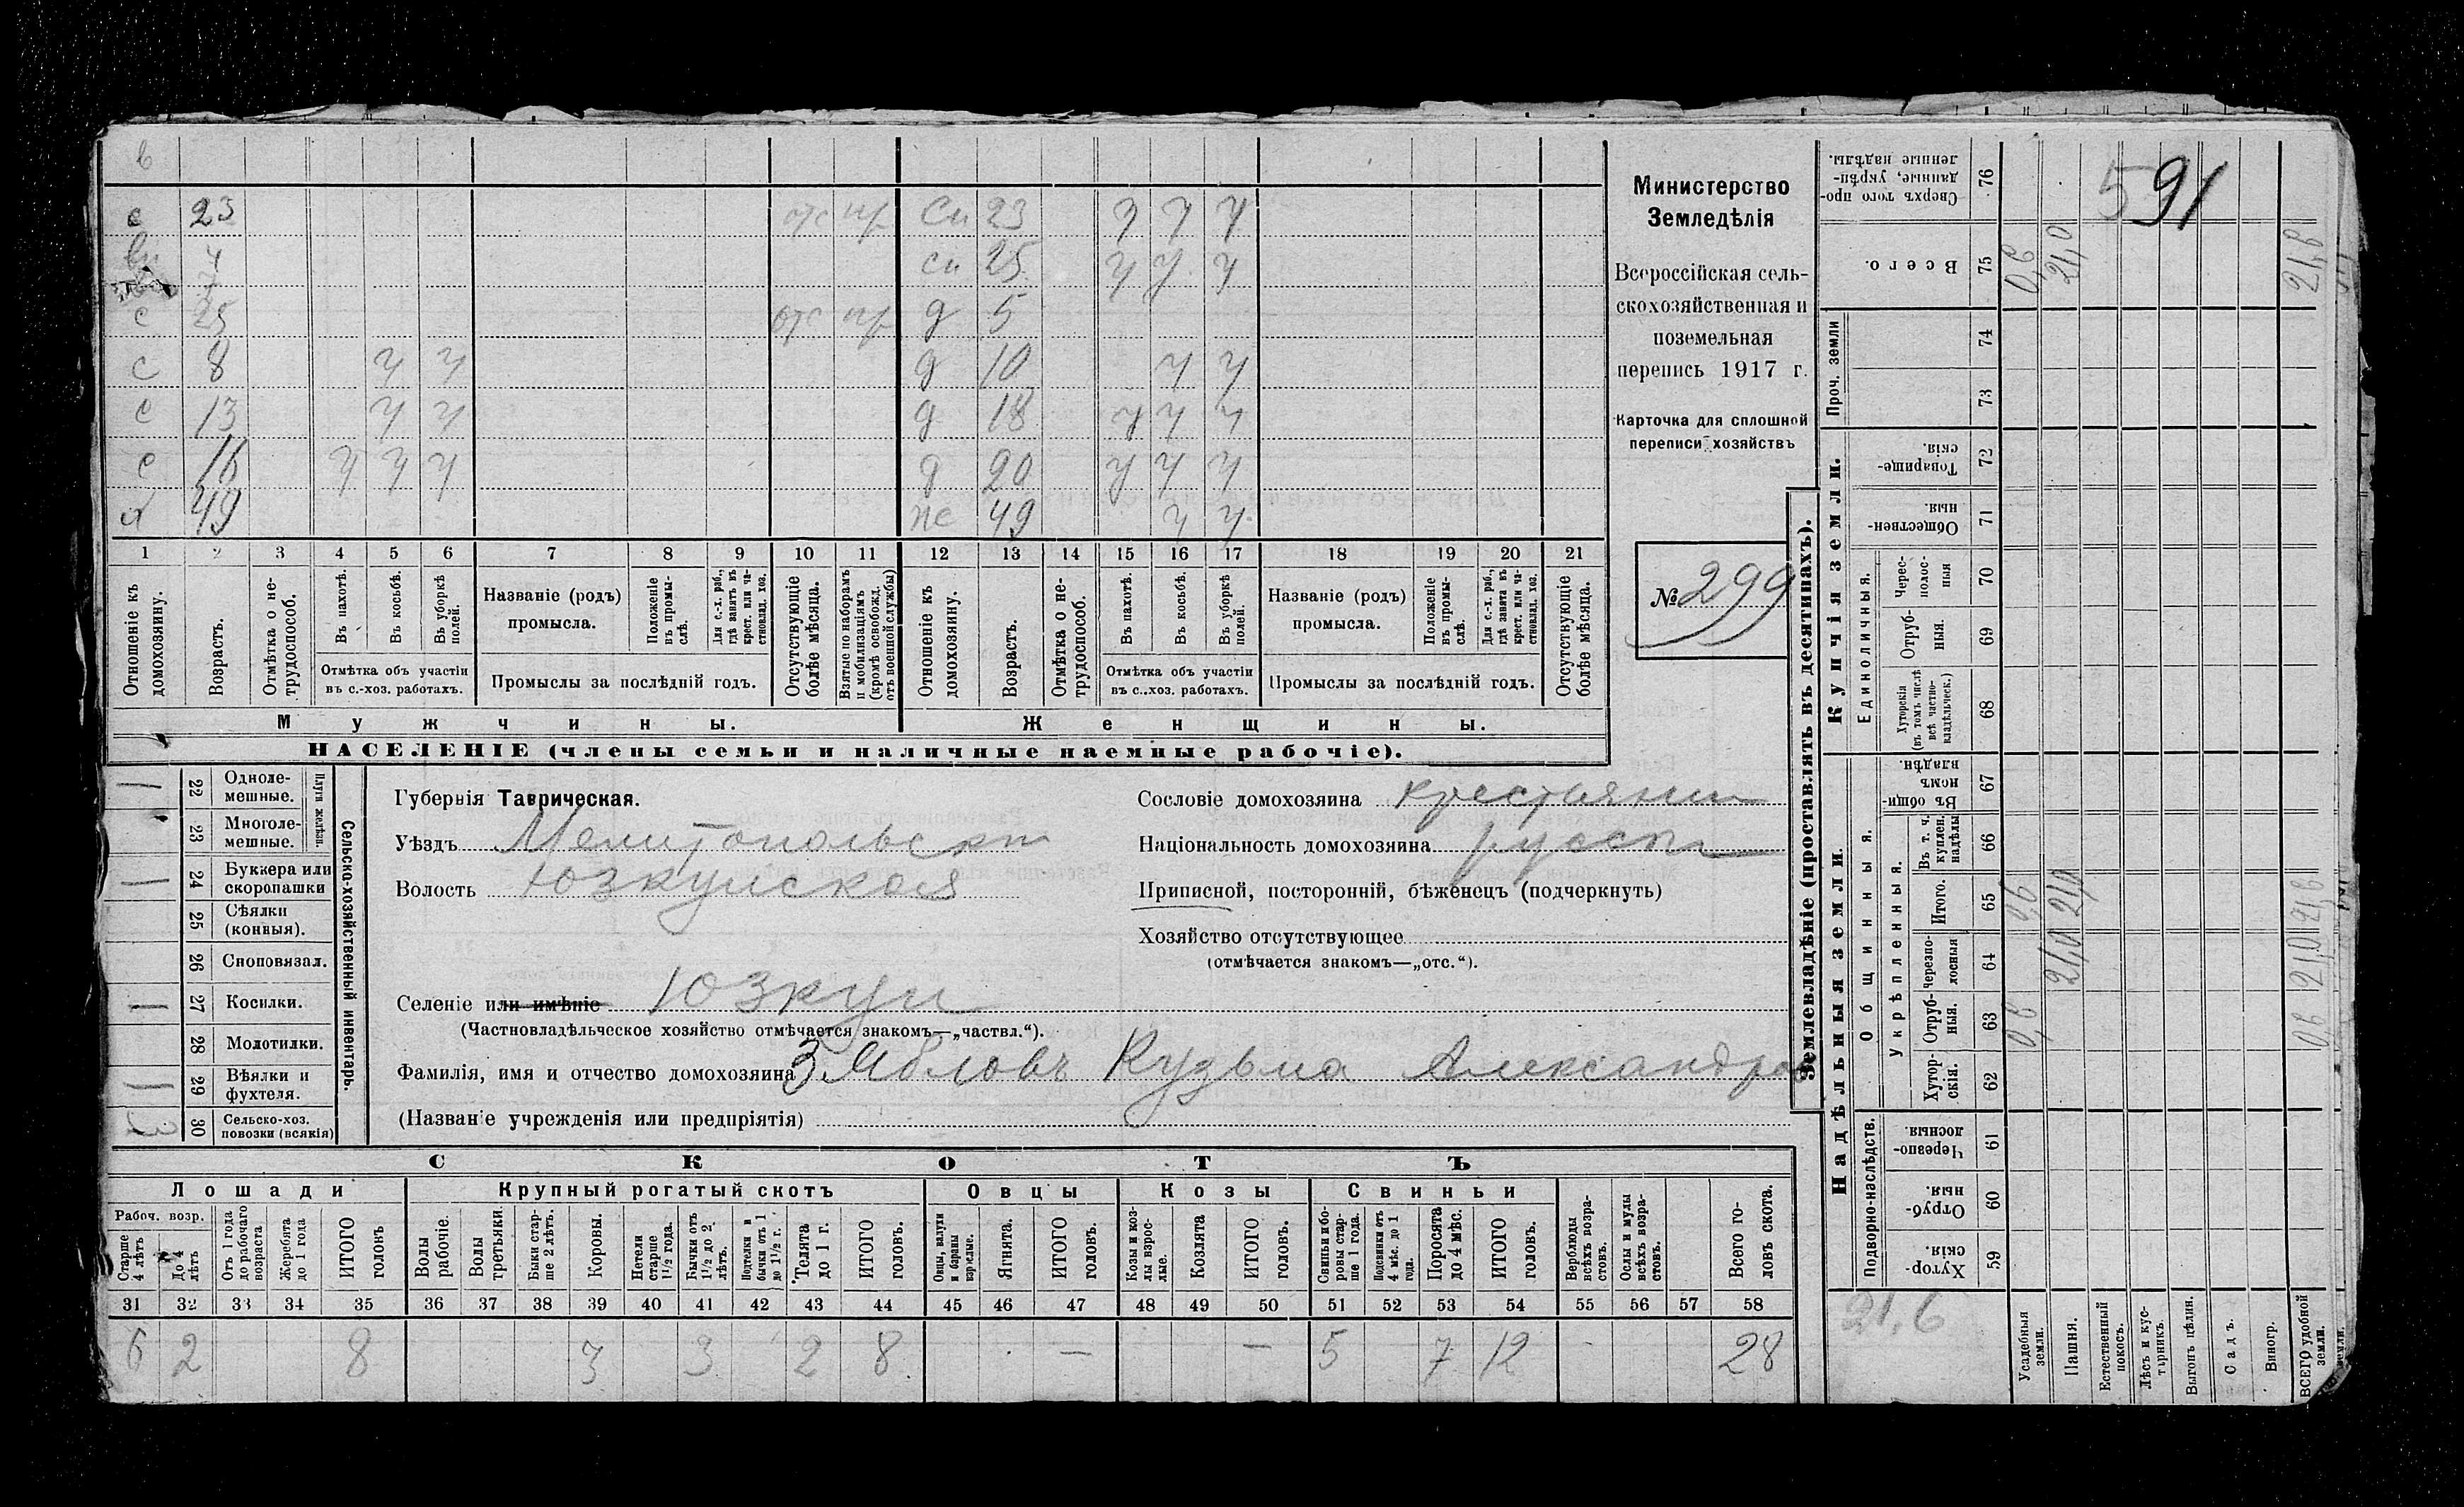 в
с 23 отс пр Сн 23 У У У
вн 4 сн 25 У У У
с 25 отс пр д 5
с 8 У У д 10 У У
с 13 У У д 18 У У У
с 16 У У У д 20 У У У
х 49 же 49 У У
1 2 3 4 5 6 7 8 9 10 11 12 13 14 15 16 17 18 19 20 21
Отношеніе къ домохозяину.
Возрастъ.
Отмѣтка о нетрудоспособ.
Въ пахотѣ.
Въ косьбѣ.
Въ уборкѣ полей.
Отмѣтка объ участіи
въ с.-хоз. работахъ.
Названіе (родъ)
промысла.
Положеніе въ промыслѣ.
Для с.-х. раб., гдѣ занятъ въ крест. или частновлад. хоз.
Промыслы за послѣдній годъ.
Отсутствующіе болѣе мѣсяца.
Взятые по наборамъ и мобилизаціямъ (кромѣ освобожд. отъ военной службы)
Отношеніе къ домохозяину.
Возрастъ.
Отмѣтка о нетрудоспособ.
Въ пахотѣ.
Въ косьбѣ.
Въ уборкѣ полей.
Отмѣтка объ участіи
въ с.-хоз. работахъ.
Названіе (родъ)
промысла.
Положеніе въ промыслѣ.
Для с.-х. раб., гдѣ занята въ крест. или частновлад. хоз.
Промыслы за послѣдній годъ.
Отсутствующіе болѣе мѣсяца.
Мужчины.
Женщины.
НАСЕЛЕНІЕ (члены семьи и наличные наемные рабочіе).
Министерство
Земледѣлія
Всероссійская сель-
скохозяйственная и
поземельная
перепись 1917 г.
Карточка для сплошной
переписи хозяйствъ
№ 299
Сельско-хозяйственный инвентарь.
Плуги желѣзн.
22 Одноле-
мешные.
23 Многоле-
мешные.
24 Буккера или
скоропашки
25 Сѣялки
(конныя).
26 Сноповязал.
27 Косилки.
28 Молотилки.
29 Вѣялки и
фухтеля.
30 Сельско-хоз.
повозки (всякія)
Губернія Таврическая.
Уѣздъ Мелитопольскій
Волость Юзкуйская
Селеніе или имѣніе Юзкуи
(Частновладѣльческое хозяйство отмѣчается знакомъ—„частвл.“).
Фамилія, имя и отчество домохозяина Зябловъ Кузьма Александров
(Названіе учрежденія или предпріятія)
Сословіе домохозяина крестьянин
Національность домохозяина русский
Приписной, посторонній, бѣженецъ (подчеркнуть)
Хозяйство отсутствующее
(отмѣчается знакомъ—„отс.“).
СКОТЪ
Лошади
Крупный рогатый скотъ
Овцы
Козы
Свиньи
Рабоч. возр.
Старше 4 лѣтъ
До 4 лѣтъ
Отъ 1 года до рабочаго возраста
Жеребята до 1 года
ИТОГО головъ
Волы рабочіе.
Волы третьяки.
Быки старше 2 лѣтъ.
Коровы.
Нетели старше 1½ года.
Бычки отъ 1½ до 2 лѣтъ.
Подтелки и бычки отъ 1 до 1½ г.
Телята до 1 г.
ИТОГО головъ.
Овцы, валухи и бараны взрослые.
Ягнята.
ИТОГО головъ.
Козы и козлы взрослые.
Козлята
ИТОГО головъ.
Свиньи и боровы старше 1 года.
Подсвинки отъ 4 мѣс. до 1 года.
Поросята до 4 мѣс.
ИТОГО головъ.
Верблюды всѣхъ возрастовъ.
Ослы и мулы всѣхъ возрастовъ.
Всего головъ скота.
31 32 33 34 35 36 37 38 39 40 41 42 43 44 45 46 47 48 49 50 51 52 53 54 55 56 57 58
6 2 8 3 3 2 8 — — 5 7 12 - 28
Землевладѣніе (проставлять въ десятинахъ).
591
Сверхъ того проданные, укрѣпленные надѣлы. 76
Всего. 75 0,6 21,0 21,6
Проч. земли 74 73
Купчія земли.
Товарищескія. 72
Общественныя. 71
Единоличныя.
Чересполосныя 70
Отрубныя. 69
Хуторскія (въ томъ числѣ всѣ частновладѣльческ.) 68
Надѣльныя земли.
Общинныя.
Въ общинномъ владѣн. 67
Укрѣпленныя.
Въ т. ч. куплен. надѣлы 66
Итого. 65 0,6 21,0 21,6
Черезполосныя 64 21,0 21,0
Отрубныя. 63 0,6 0,6
Хуторскія. 62
Подворно-наслѣдств.
Черезполосныя. 61
Отрубныя 60
Хуторскія 59
21,6
Усадебныя земли.
Пашня.
Естественный покосъ.
Лѣсъ и кустарникъ.
Выгонъ цѣлин.
Садъ.
Виногр.
ВСЕГО удобной земли.